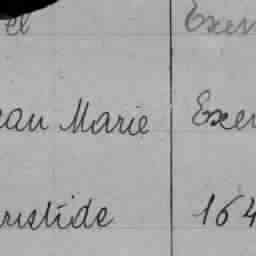 el Exem
ean Marie Exem
ristide 164